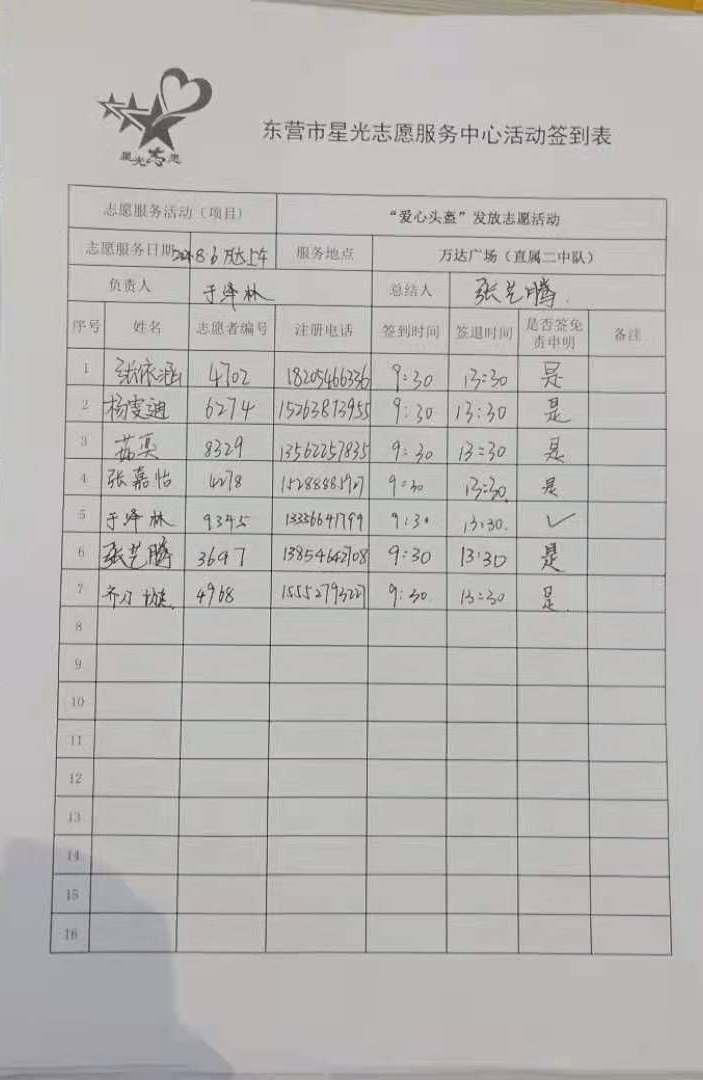 星光志愿
东营市星光志愿服务中心活动签到表
志愿服务活动（项目） “爱心头盔”发放志愿活动
志愿服务日期 8.6 上午 服务地点 万达广场（直属二中队）
负责人 于泽林 总结人 张艺腾
序号 姓名 志愿者编号 注册电话 签到时间 签退时间 是否签免责申明 备注
1 张依涵 4702 18205466336 9:30 13:30 是
2 杨雯迪 6274 15263873955 9:30 13:30 是
3 8329 13562257835 9:30 13:30 是
4 张嘉怡 4278 9:30 13:30 是
5 于泽林 9345 13336641799 9:30 13:30. ✓
6 张艺腾 3697 13854642708 9:30 13:30 是
7 4968 15552793227 9:30 13:30 是.
8
9
10
11
12
13
14
15
16